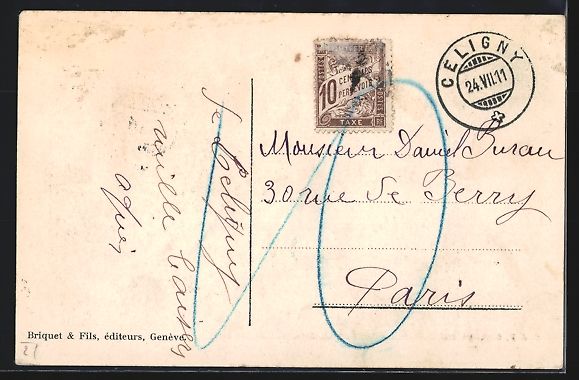 CELIGNY
24.VII.11
10
CENTIMES
À
PERCEVOIR
POSTES
TAXE
10
Monsieur Daniel
30 rue de Berry
Paris
de Céligny
mille baisers
Briquet & Fils, éditeurs, Genève.